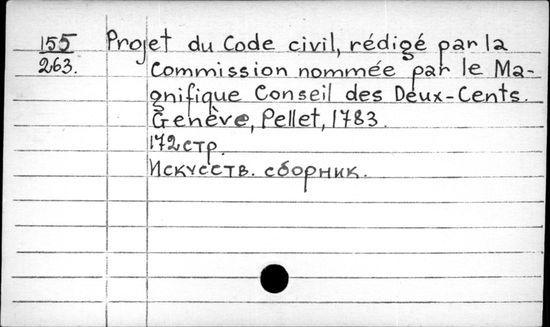 155 Projet du Code civil, rédigé par la
263. Commission nommée par le Ma-
gnifique Conseil des Deux-Cents.
Genève, Pellet, 1783.
172 стр.
Искусств. сборник.